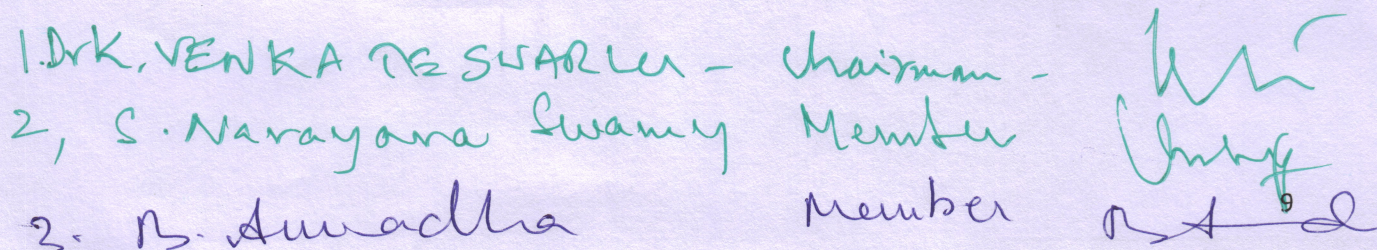 1. Dr K. VENKATESWARLU - Chairman -
2, S. Narayana Swamy Member
3. B. Anuradha Member
9